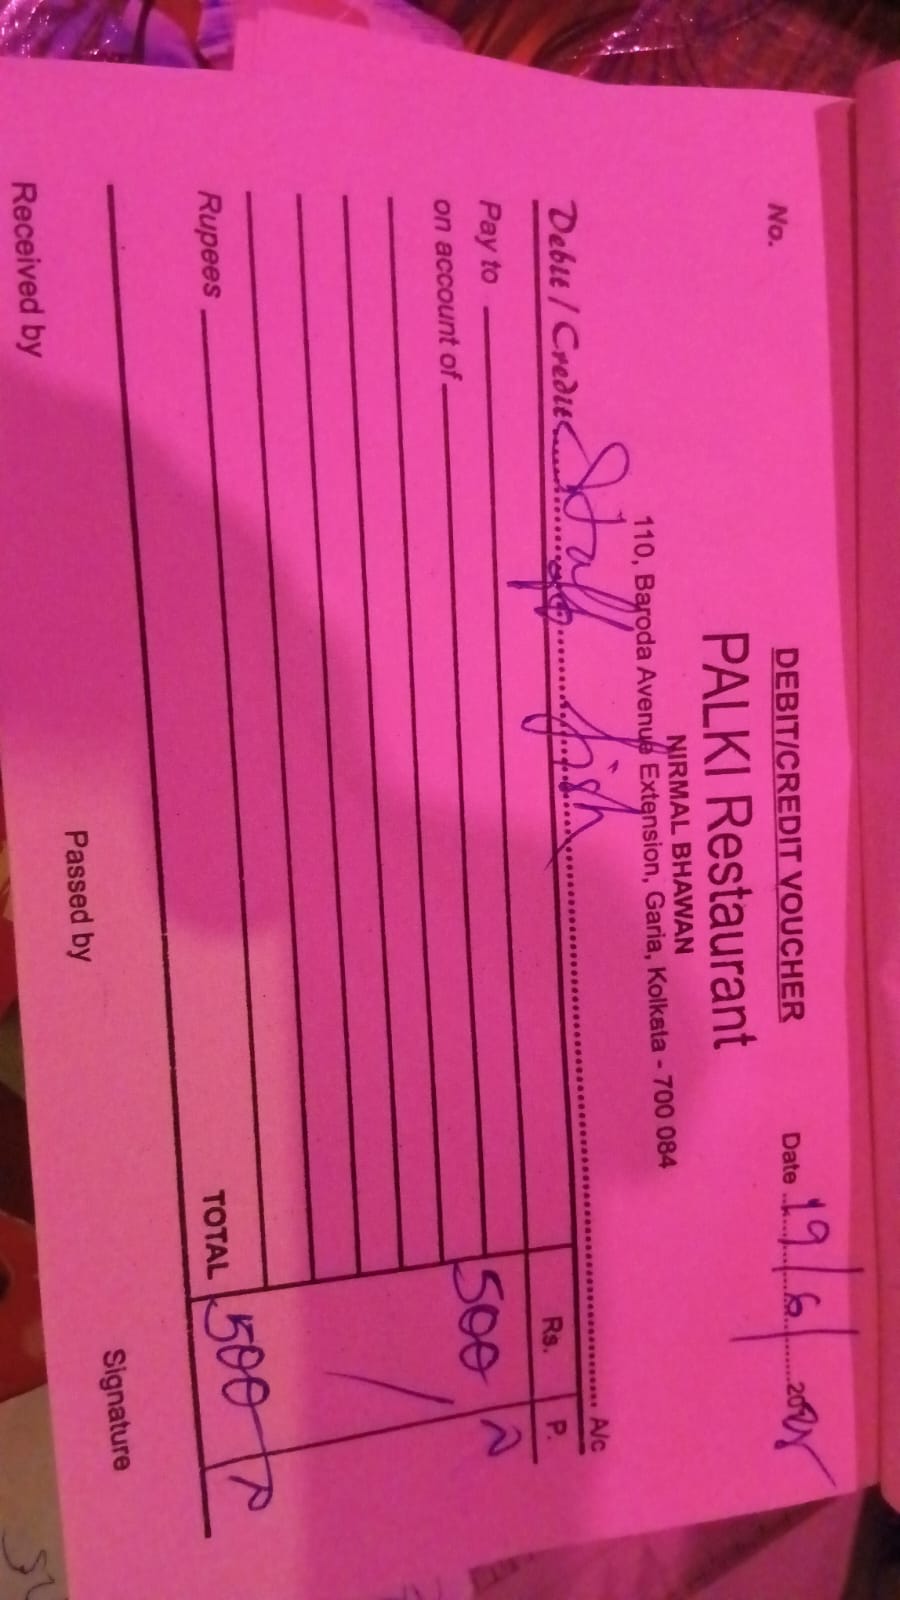 DEBIT/CREDIT VOUCHER
No. PALKI Restaurant Date 19/6/20
NIRMAL BHAWAN
110, Baroda Avenue Extension, Garia, Kolkata - 700 084
Debit / Credit Staff fish A/c
Rs. P.
Pay to 500
on account of
Rupees TOTAL 500
Received by Passed by Signature